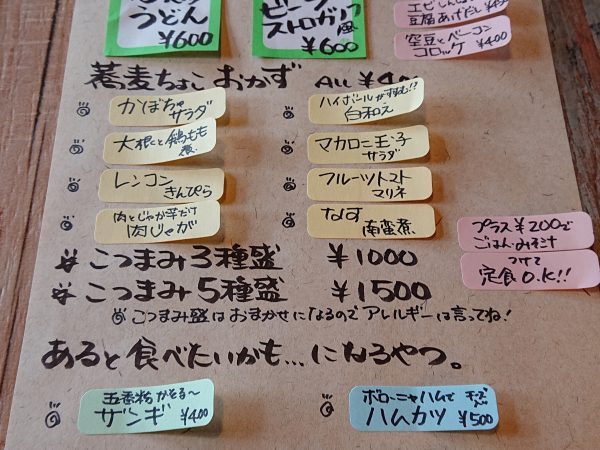 うどん
¥600
ストロガノフ
風
¥600
豆腐あげだし ¥450
空豆とベーコン
コロッケ ¥400
蕎麦ちょこ おかず All ¥400
かぼちゃ
サラダ
ハイボールがすすむ!?
白和え
大根と鶏もも
煮
マカロニ玉子
サラダ
レンコン
きんぴら
フルーツトマト
マリネ
肉とじゃが芋だけ
肉じゃが
なす
南蛮煮
プラス¥200で
ごはん・みそ汁
つけて
定食O.K!!
こつまみ3種盛 ¥1000
こつまみ5種盛 ¥1500
こつまみ盛はおまかせになるのでアレルギーは言ってね!
あると食べたいかも…になるやつ。
五香粉かおる〜
ザンギ ¥400
ボローニャハムで チーズ入り
ハムカツ ¥500